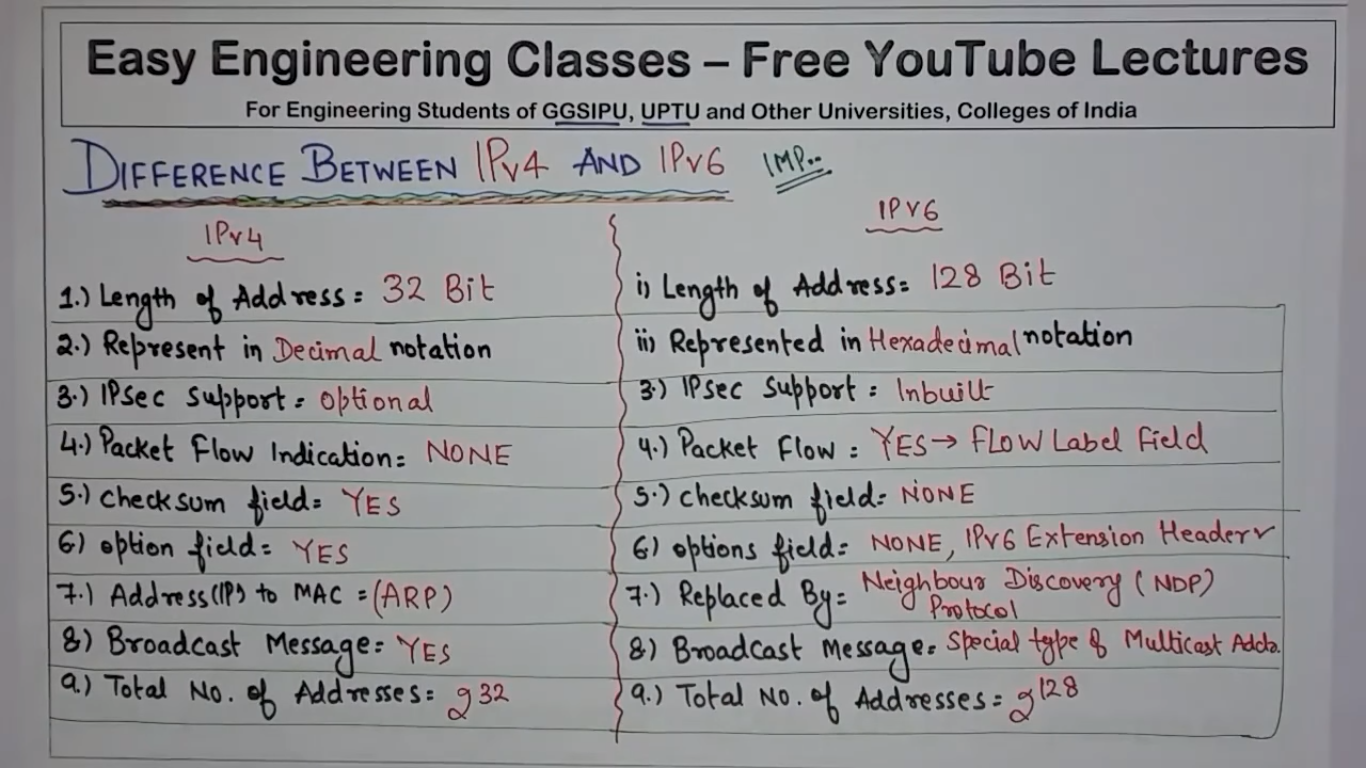 Easy Engineering Classes – Free YouTube Lectures
For Engineering Students of GGSIPU, UPTU and Other Universities, Colleges of India
DIFFERENCE BETWEEN IPv4 AND IPv6 IMP..
IPv4
1.) Length of Address = 32 Bit
2.) Represent in Decimal notation
3.) IPSec Support = optional
4.) Packet Flow Indication = NONE
5.) Checksum field = YES
6) option field = YES
7.) Address(IP) to MAC = (ARP)
8) Broadcast Message = YES
9.) Total No. of Addresses = 2^32
IPv6
i) Length of Address = 128 Bit
ii) Represented in Hexadecimal notation
3.) IPSec Support = Inbuilt
4.) Packet Flow = YES → FLOW Label Field
5.) Checksum field = NONE
6) options field = NONE, IPv6 Extension Header ✓
7.) Replaced By = Neighbour Discovery (NDP)
Protocol
8) Broadcast Message = Special type of Multicast Addr.
9.) Total No. of Addresses = 2^128